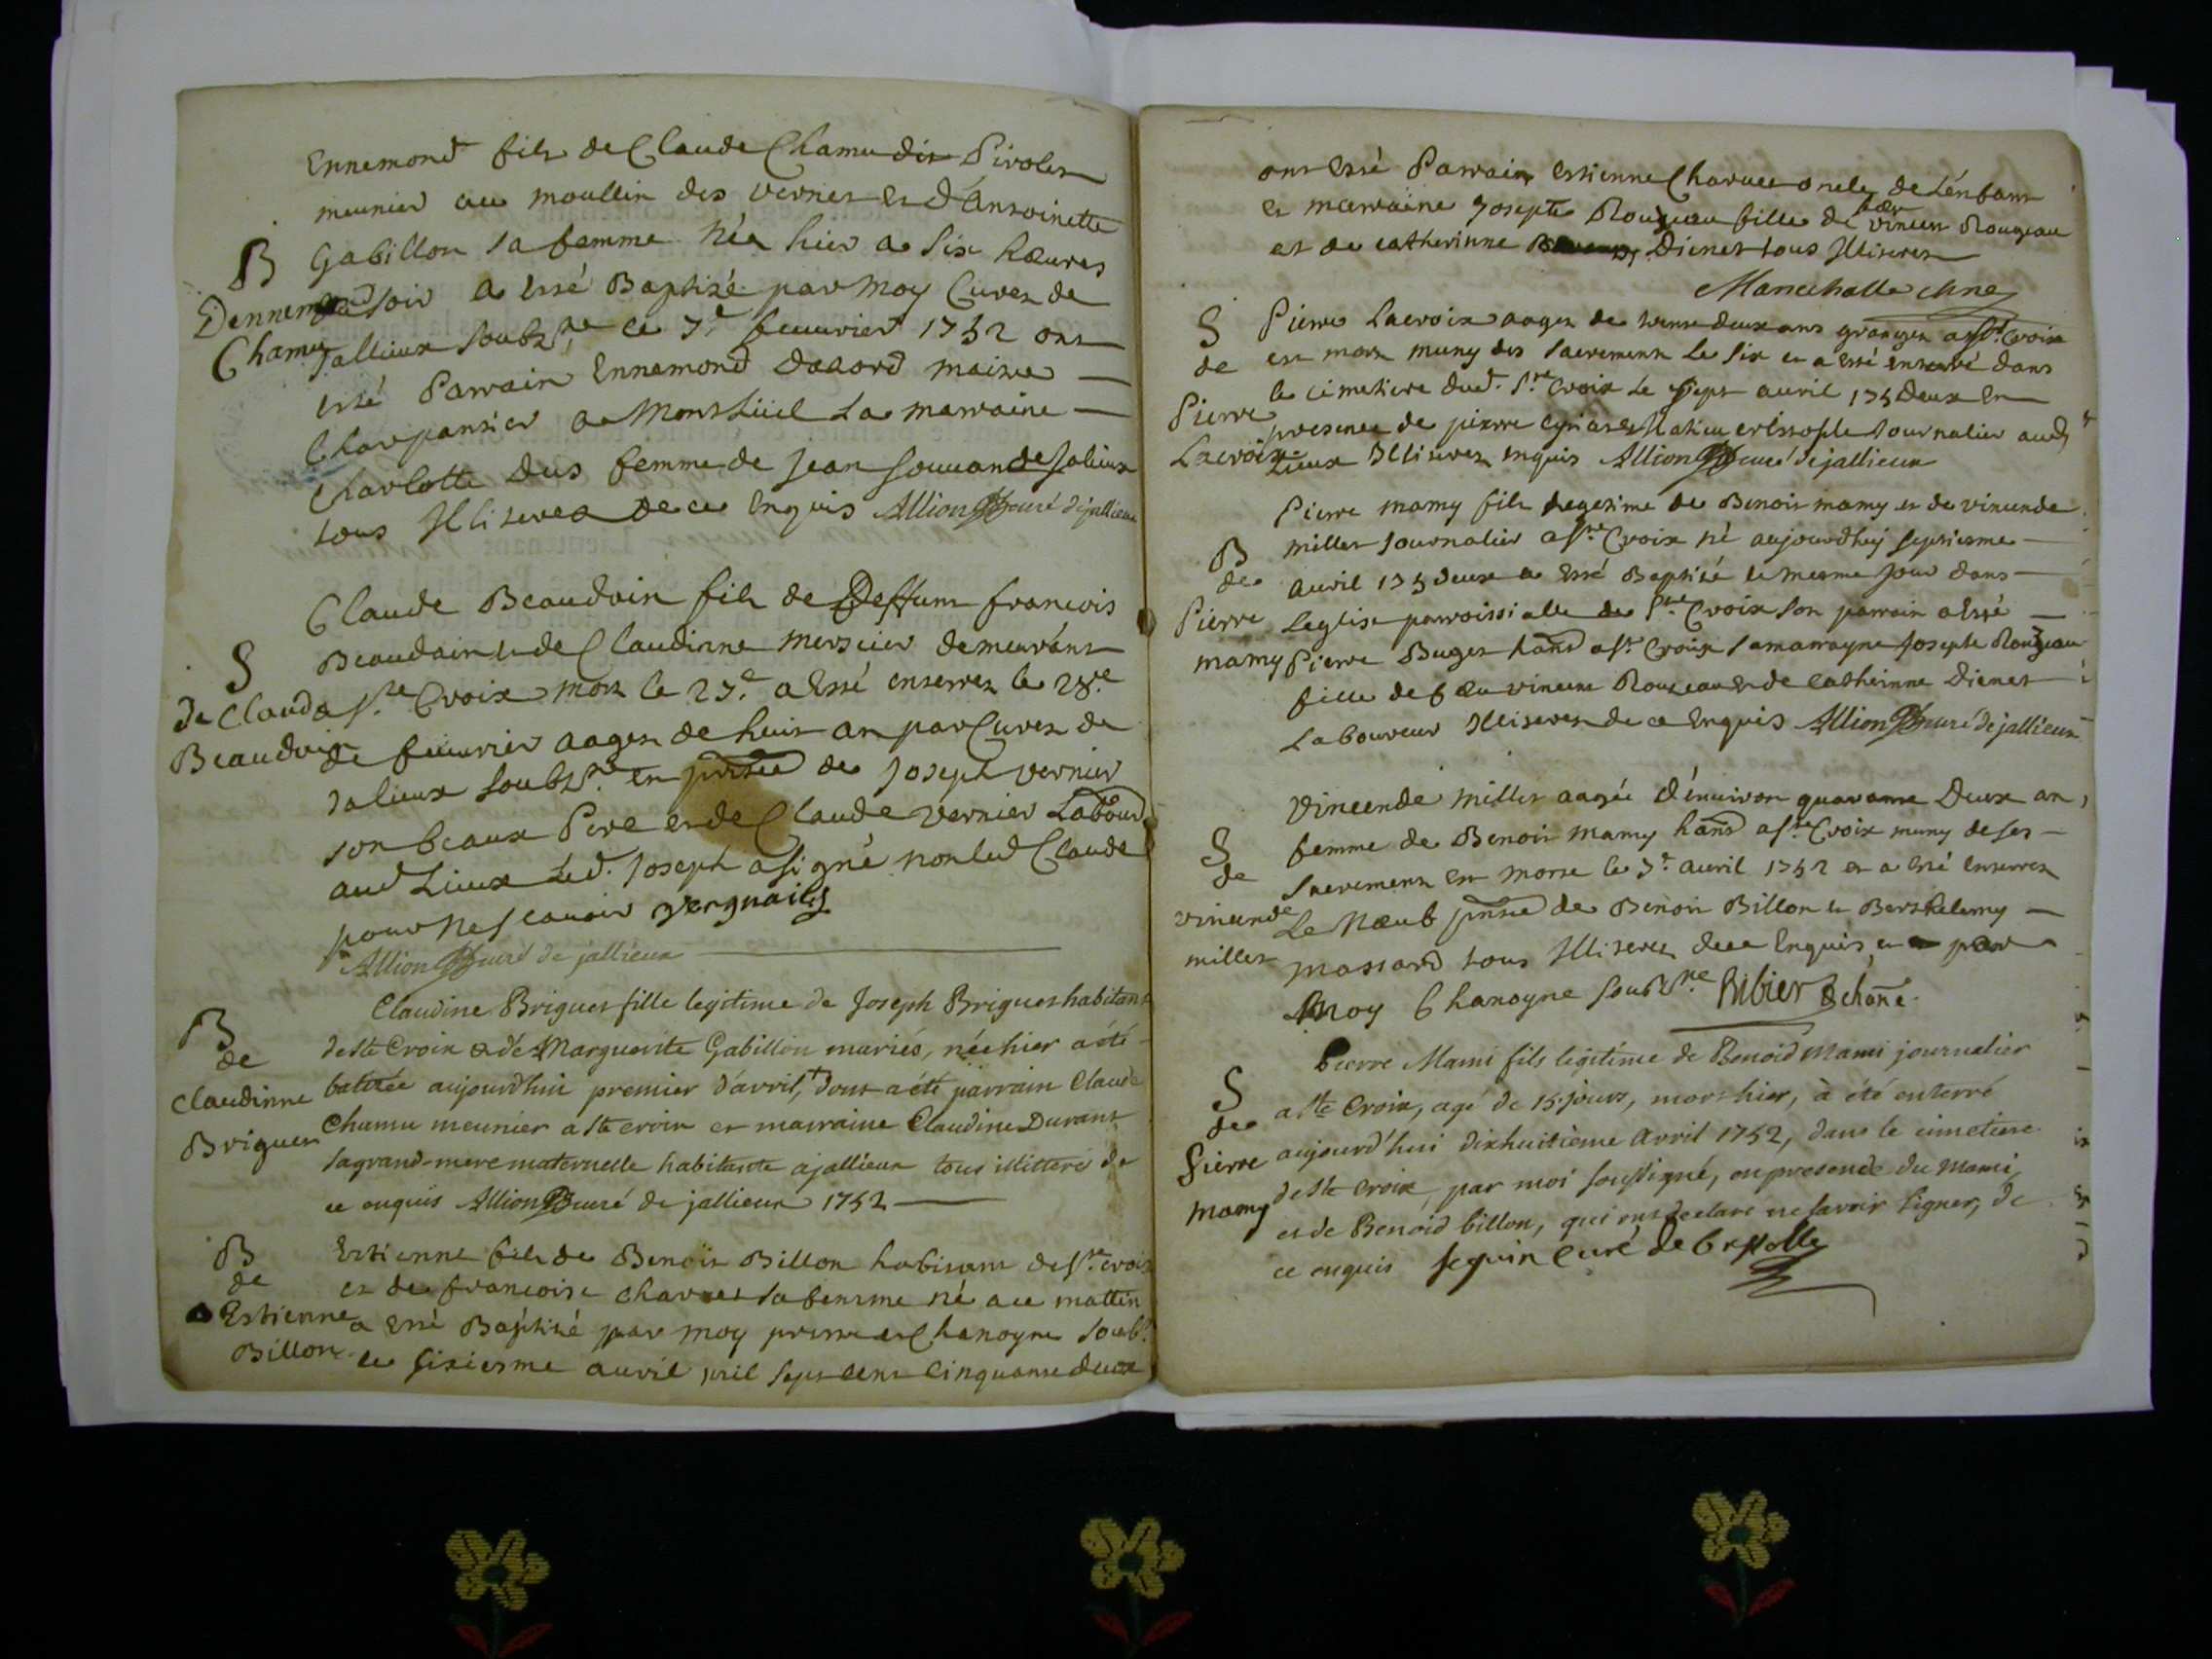 Ennemond fils de Claude Chamu dit Pirolet
meunier au moullin des vernes et d'Antoinette
B Gabillon sa femme né hier a six hœures
Dennemond du soir a esté Baptizé par moy Curez de
Chamu Jallieux soubz.né le 7.e feuvrier 1752 ont
esté Parrain Ennemond maitre
Charpantier a Montluel La marraine
Charlotte Dus femme de Jean de Jalieux
tous Illiterez de ce Enquis Allion curé de jallieux
Claude Beaudoin fils de Deffunt francois
S Beaudoin et de Claudinne Mercier demeurant
de Claude a S.te Croix mort le 27.e a esté enterrez le 28.e
Beaudoin de feuvrier aagez de huit an par Curez de
Jalieux soubz.né en présce de Joseph vernier
son beaux Pere et de Claude vernier Labour
aud Lieux Led. Joseph a signé non led Claude
pour ne scavoir
Allion curé de jallieux
Claudine Briguet fille legitime de Joseph Briguet habitant
B
de
de ste Croix & de Marguerite Gabillon mariés, née hier a été
Claudinne batisée aujourdhui premier d'avril, dont a été parrain Claude
Briguet Chamu meunier a ste croix et marraine Claudine Durant
sa grand-mere maternelle habitante a jallieux tous illitteré de
ce enquis Allion curé de jallieux 1752
B
de
Estienne fils de Benoit Billon habitant de S.te croix
et de francoise charvet sa femme né a ce mattin
Estienne a esté Baptizé par moy prestre et Chanoyne soubz.
Billon le sixiesme auvril mil sept cent cinquante deux
ont esté Parrain Estienne Charvet oncle de L'enfant
et marraine Josepte Rouzeau fille de fœu vincent Rouzeau
et de catherinne Dienet tous Illiterez
Marechalle chne
S
de
Pierre Lacroix aagez de trente deux ans granger a S.te Croix
est mort muny des sacrement Le six et a esté enterré dans
le cimetiere dud. S.te Croix Le sept auvril 175 Deux En
Pierre presence de pierre et journalier aud
Lacroix Lieux Illiterez enquis Allion curé de jallieux
Pierre mamy fils legetime de Benoit mamy et de vincende
B
de
millet journalier a S.te Croix né aujourdhuy septiesme
auvril 175 deux a esté Baptizé le mesme jour dans
Pierre Leglise parroissialle de S.te Croix son parrain a esté
mamy Pierre Buget hant a S.te Croix sa marrayne Josepte Rouzeau
fille de fœu vincent Rouzeau et de catherinne Dienet
Laboureur Illiterez de ce Enquis Allion curé de jallieux
Vincende millet aagée d'enuiron quarante Deux an
S
de
femme de Benoit mamy hant a S.te Croix muny de ses
sacrement est morte le 7.e auvril 1752 et a esté enterrez
vincende Le Nœuf présce de Benoit Billon et Berthelemy
millet massard tous Illiterez de ce Enquis, et par
Moy Chanoyne soubz.né Ribier chane.
Pierre Mami fils legitime de Benoid Mami journalier
S
de
a Ste Croix, agé de 15. jours, mort hier, à été enterré
Pierre aujourd'hui dixhuitième avril 1752, dans le cimetiere
mamy de Ste croix, par moi soussigné, en presence du Mami,
et de Benoid billon, qui ont declaré ne savoir signer, de
ce enquis seguin curé de